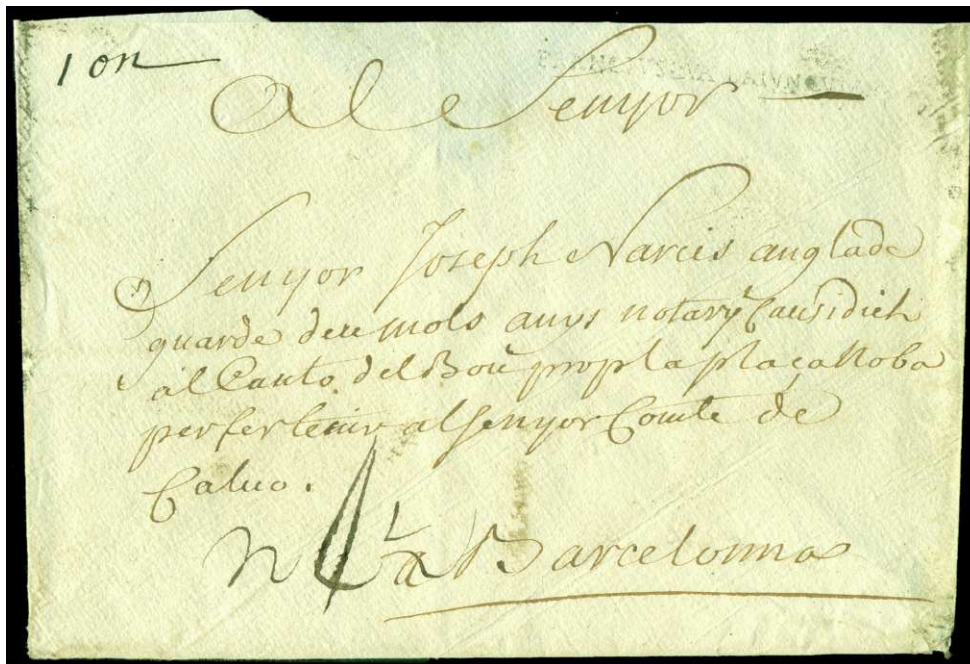 1 on
Al Senyor
Senyor Joseph Narcis anglade
guarde deu mols anys notary Causidich
al Canto del Bou prop la plaça Noba
per fer tenir al senyor Comte de
Caluo.
a Barcelonna